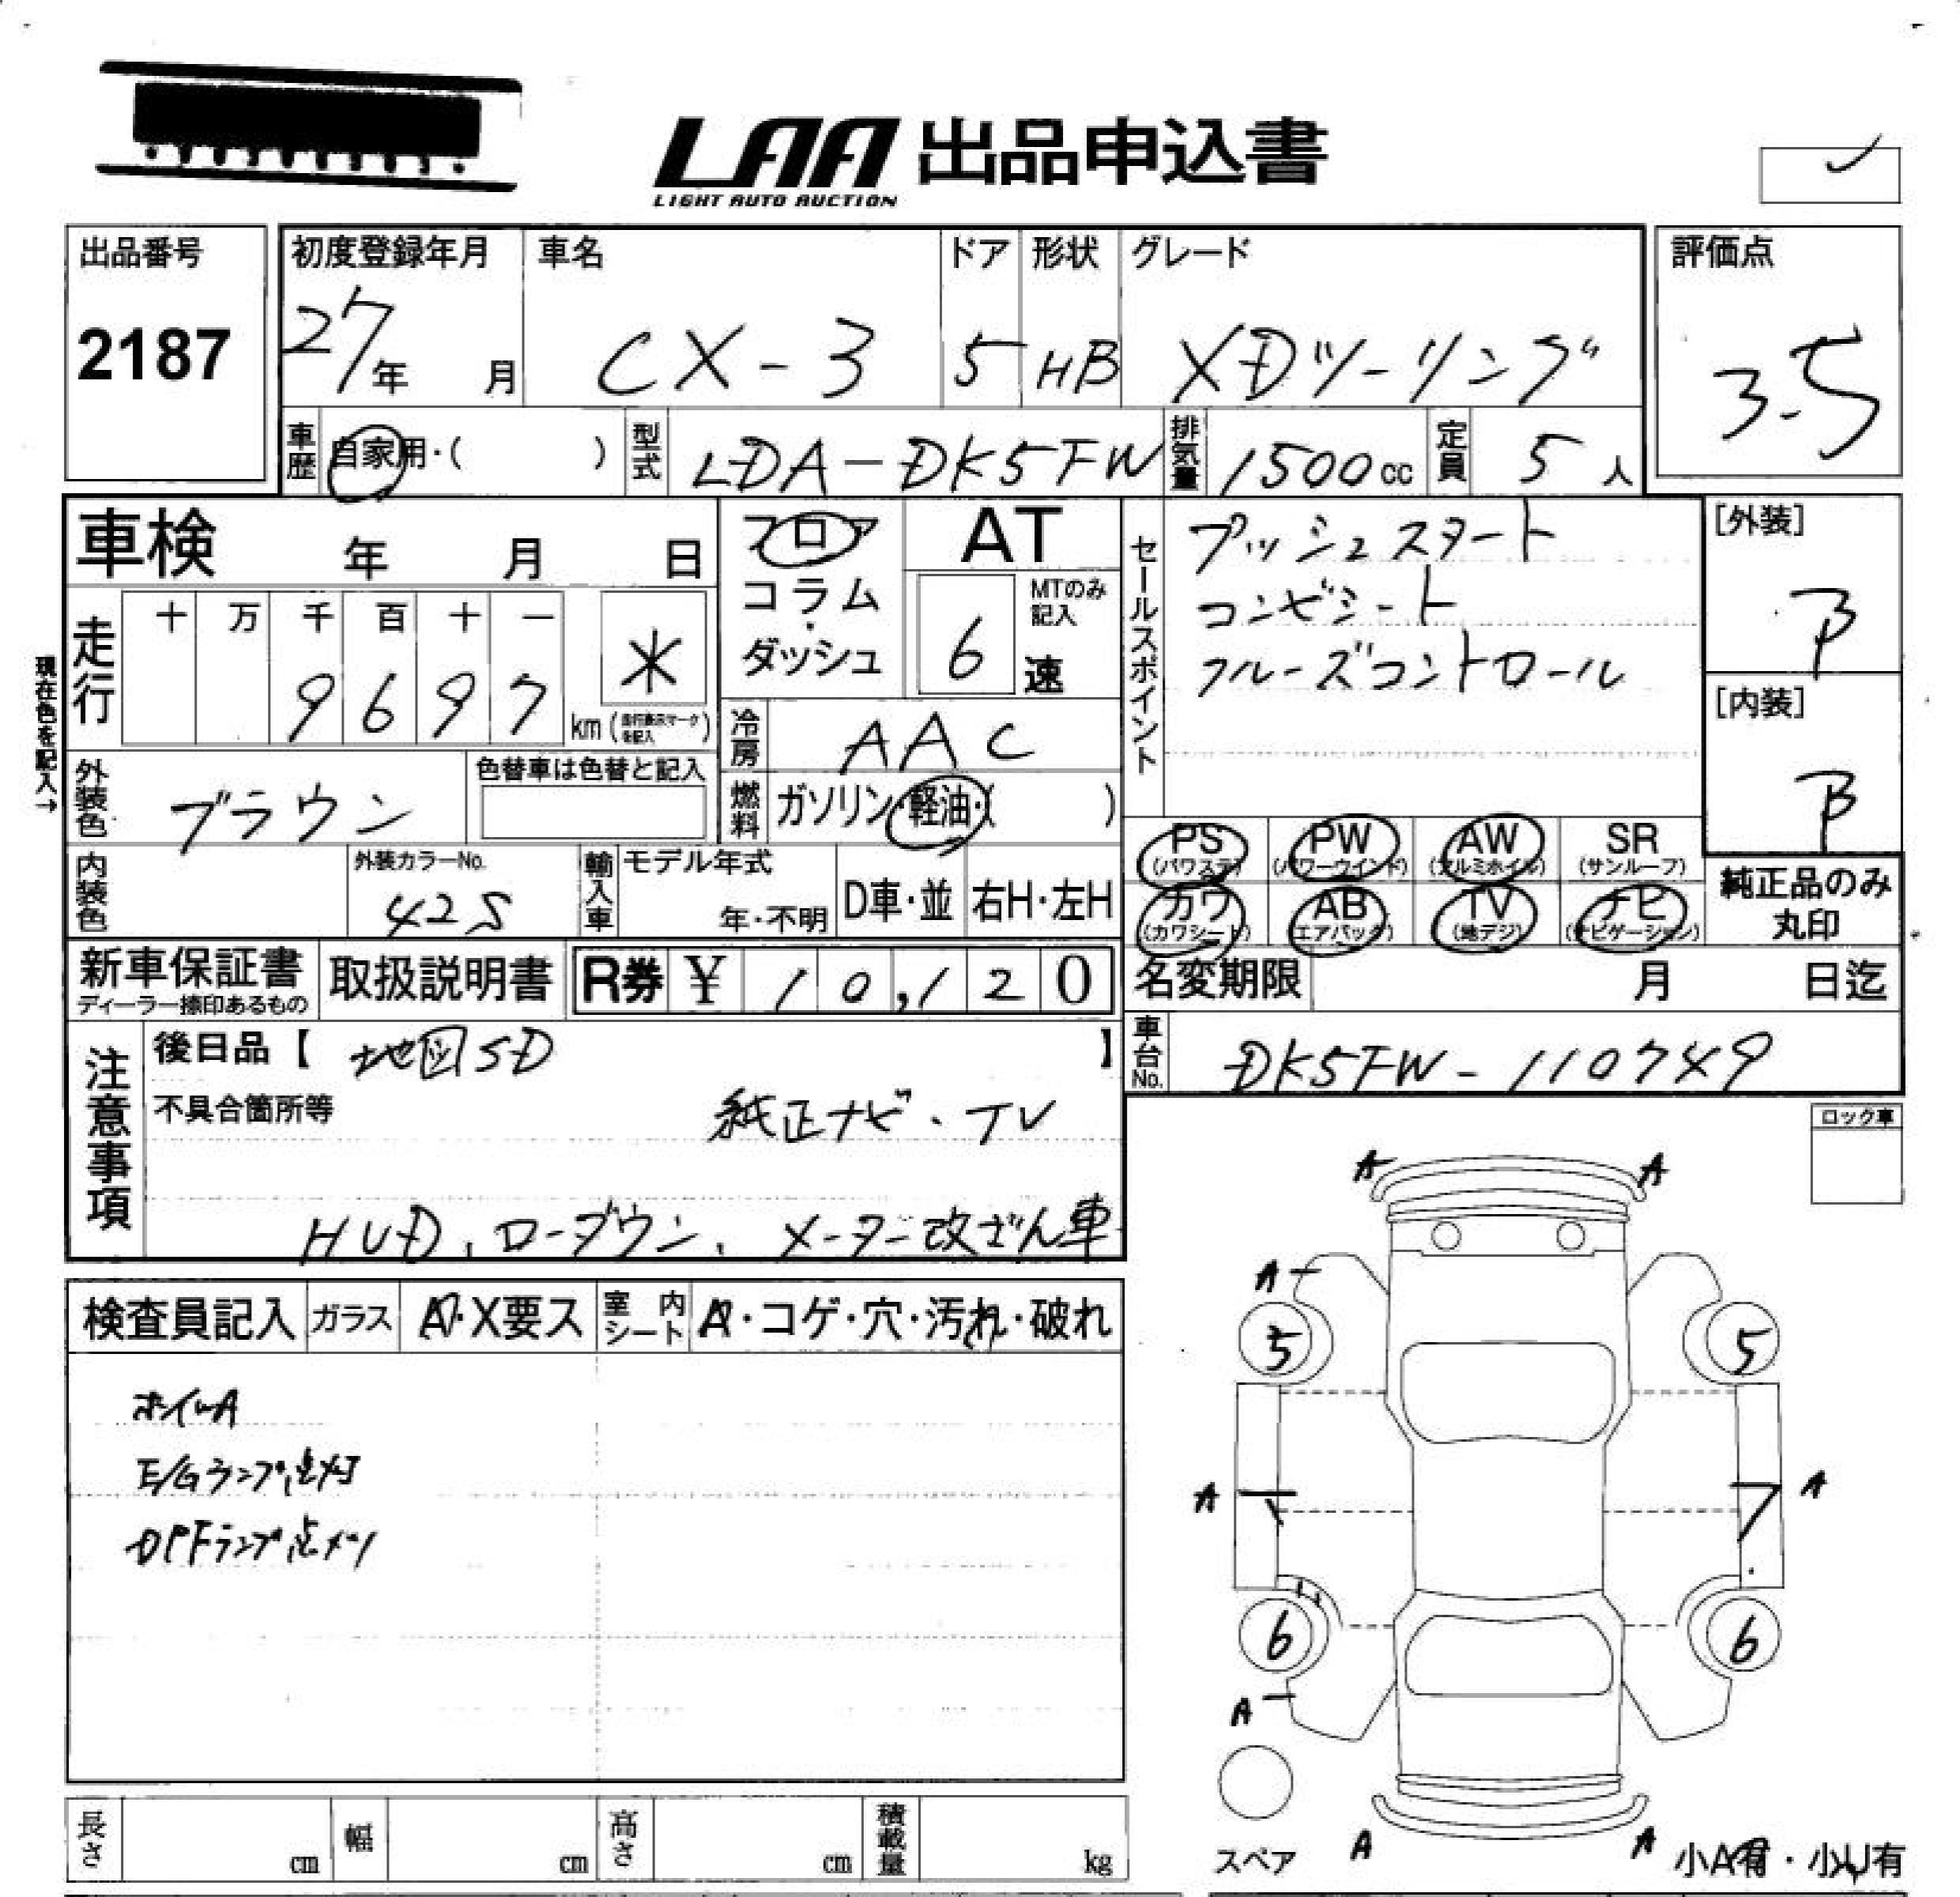 LAA 出品申込書
LIGHT AUTO AUCTION
出品番号
2187
初度登録年月
27年 月
車名
CX-3
ドア
5
形状
HB
グレード
XDツーリング
評価点
3.5
車歴 自家用・( )
型式 LDA-DK5FW
排気量 1500cc
定員 5人
車検 年 月 日
フロア
コラム・
ダッシュ
AT
MTのみ記入
6速
セールスポイント
プッシュスタート
コンビシート
クルーズコントロール
[外装]
B
[内装]
B
現在色を記入→
走行 十 万 千 百 十 一
9697 km (走行表示マークを記入)
*
冷房 AAC
外装色 ブラウン
色替車は色替と記入
燃料 ガソリン・軽油・( )
内装色
外装カラーNo.
42S
輸入車
モデル年式
年・不明
D車・並
右H・左H
PS (パワステ)
PW (パワーウインド)
AW (アルミホイル)
SR (サンルーフ)
カワ (カワシート)
AB (エアバック)
TV (地デジ)
ナビ (ナビゲーション)
純正品のみ
丸印
新車保証書
ディーラー捺印あるもの
取扱説明書
R券 ¥ 10,120
名変期限 月 日迄
車台No. DK5FW-110749
注意事項
後日品【 地図SD 】
不具合箇所等
純正ナビ・TV
HUD、ローダウン、メーター改ざん車
ロック車
検査員記入
ガラス
A・X要ス
室内シート
A・コゲ・穴・汚れ・破れ
ホイルA
E/Gランプ点灯
DPFランプ点灯
A A
A
5 5
A A
6 6
A
スペア
A A
小A有・小U有
長さ cm
幅 cm
高さ cm
積載量 kg